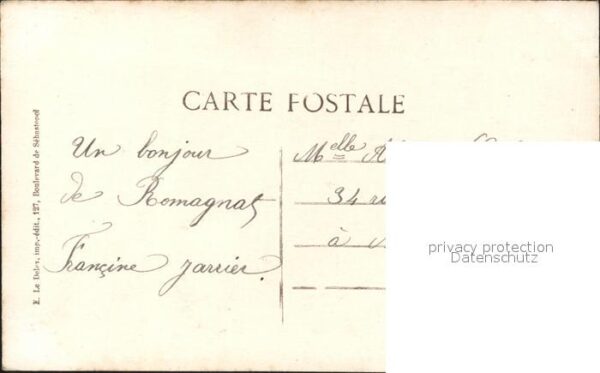 CARTE POSTALE
Un bonjour
de Romagnat
Françine Jarrier.
Melle
34
à
E. Le Deley, imp.-édit., 127, Boulevard de Sébastopol
privacy protection
Datenschutz